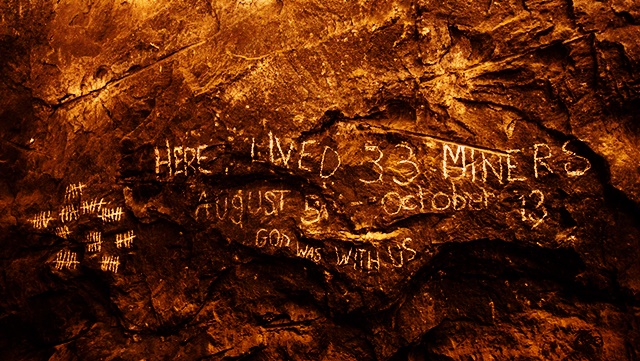 HERE, LIVED 33 MINERS
AUGUST 5 - October 13
GOD WAS WITH US